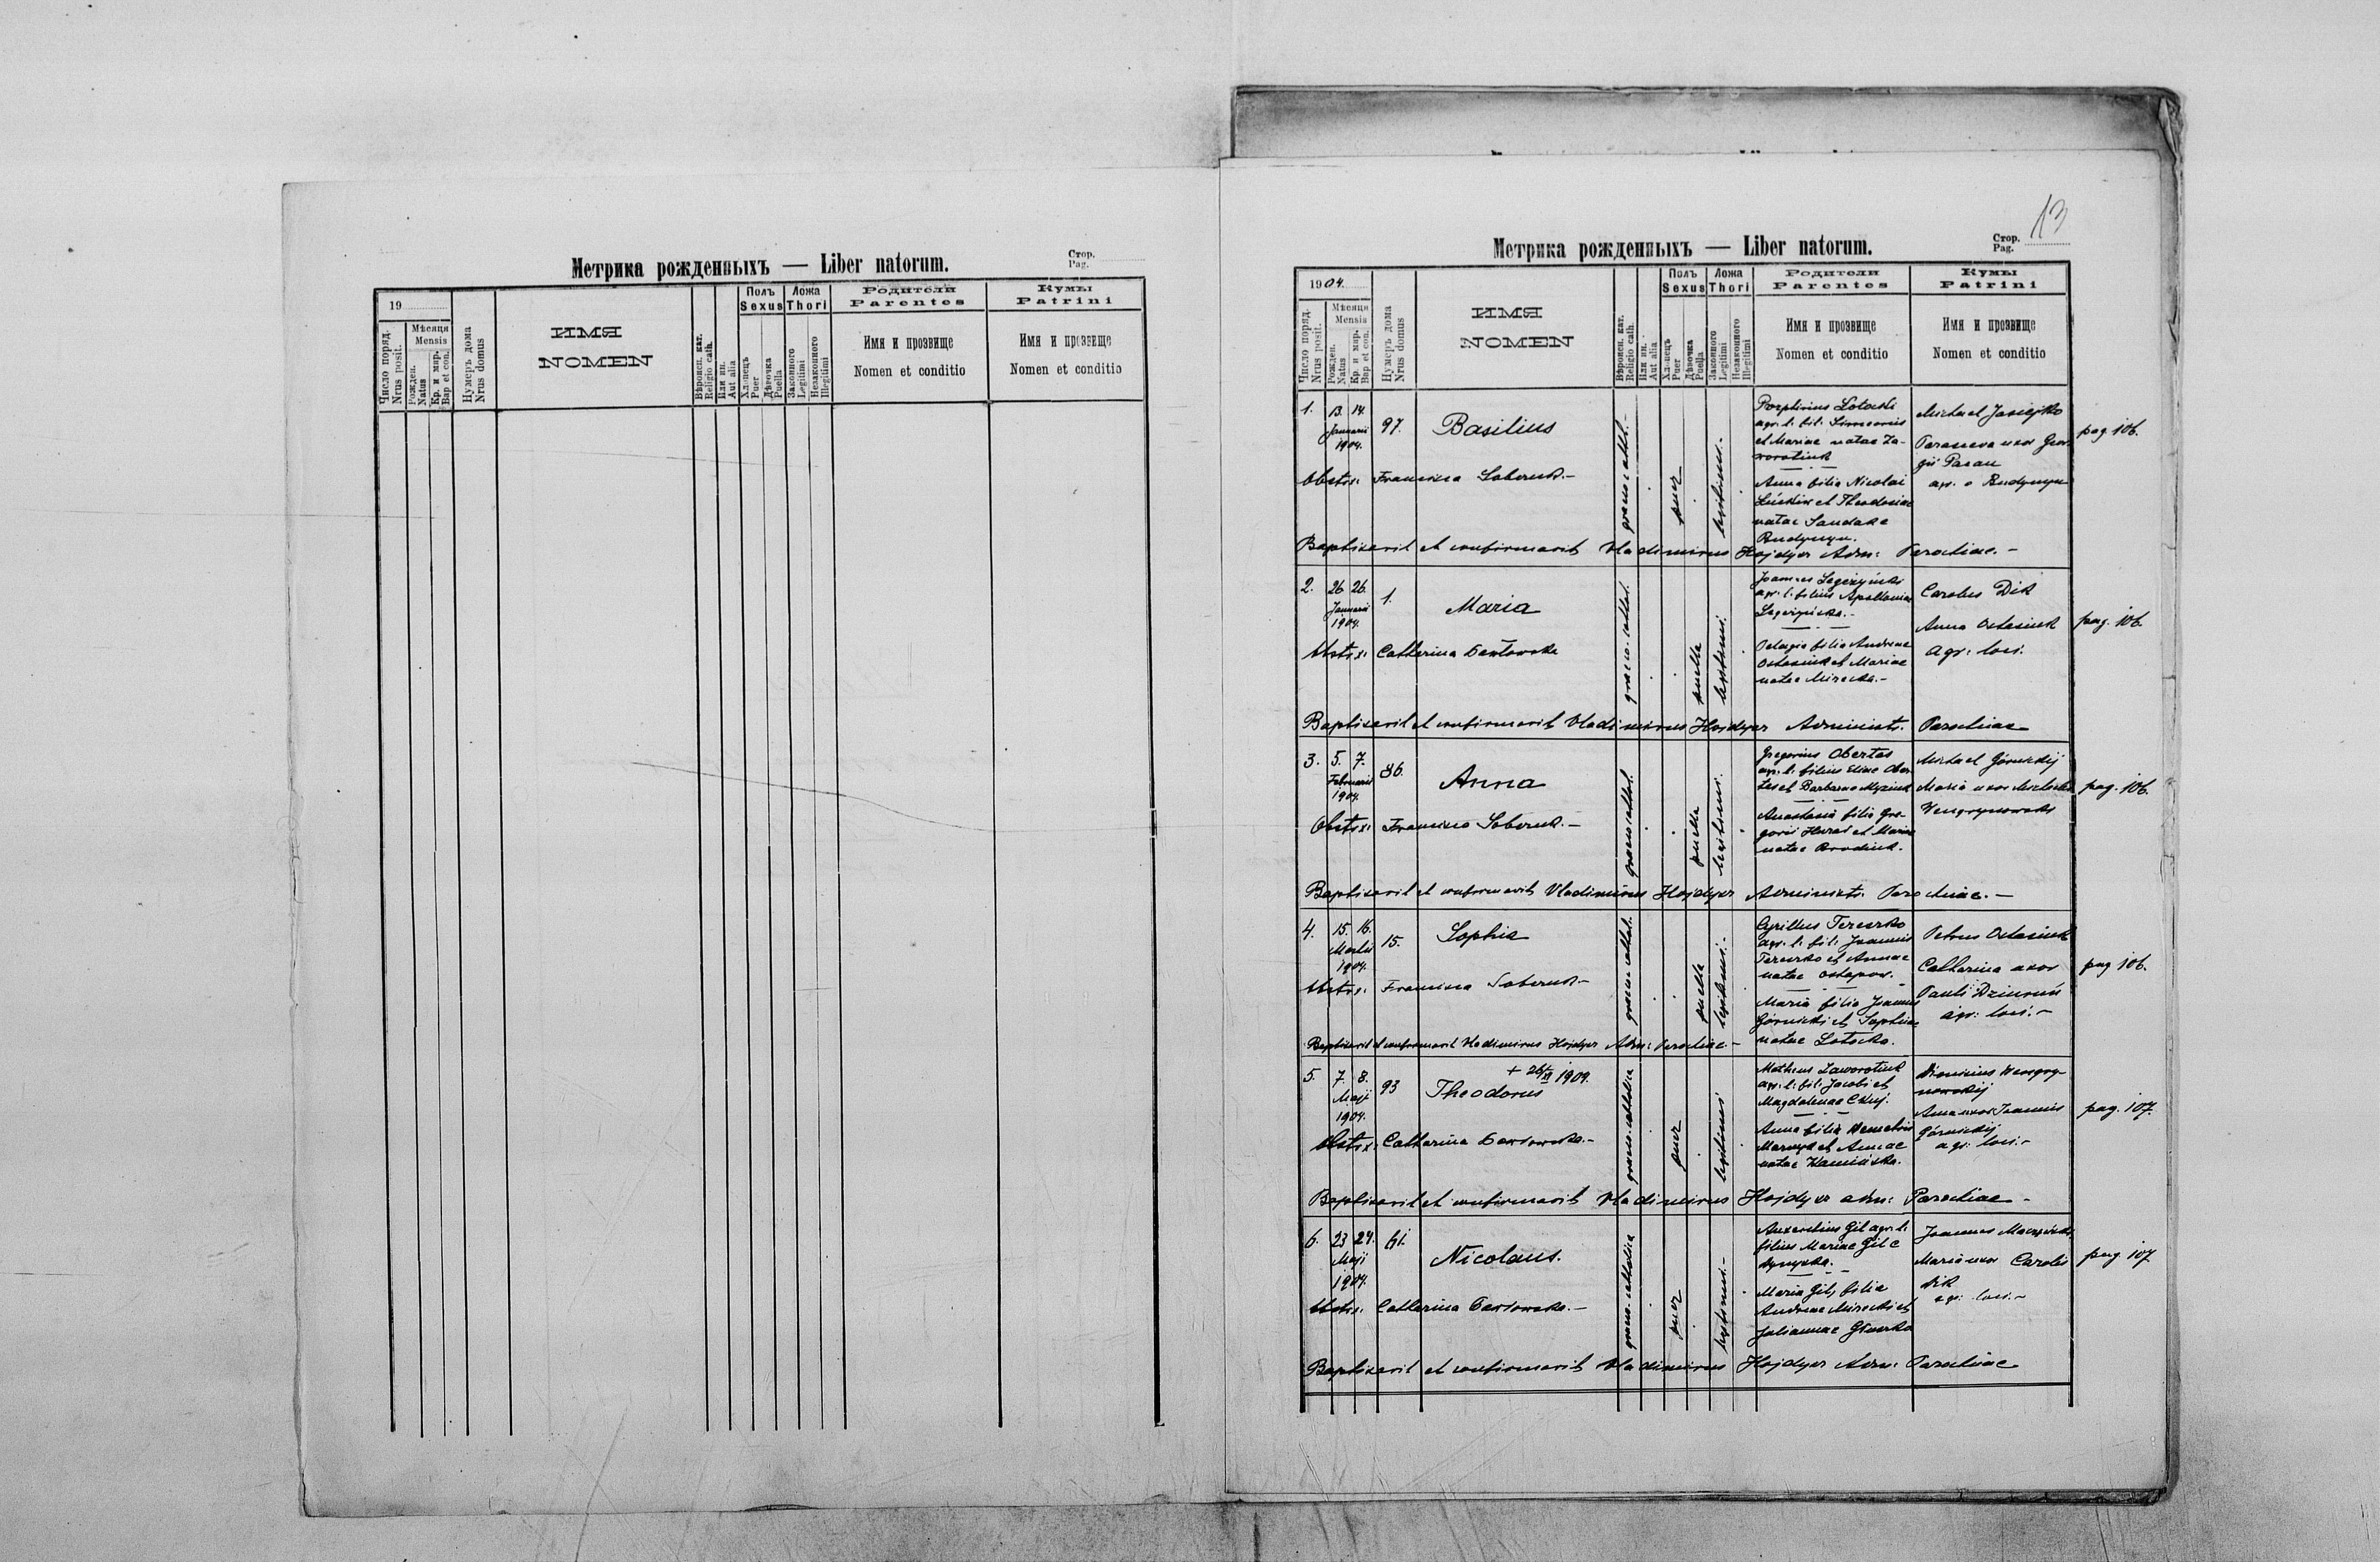 Метрика рожденныхъ — Liber natorum.
Стор.
Pag.
19
Число поряд.
Nrus posit.
Мѣсяця
Mensis
Рожден.
Natus
Кр. и мир.
Bap et con.
Нумеръ дома
Nrus domus
ИМЯ
NOMEN
Вѣроисп. кат.
Religio cath.
Или ин.
Aut alia
Полъ
Sexus
Хлопецъ
Puer
Дѣвочка
Puella
Ложа
Thori
Законного
Legitimi
Незаконного
Illegitimi
Родители
Parentes
Имя и прозвище
Nomen et conditio
Кумы
Patrini
Имя и прозвище
Nomen et conditio
13
Метрика рожденныхъ — Liber natorum.
Стор.
Pag.
1904.
Число поряд.
Nrus posit.
Мѣсяця
Mensis
Рожден.
Natus
Кр. и мир.
Bap et con.
Нумеръ дома
Nrus domus
ИМЯ
NOMEN
Вѣроисп. кат.
Religio cath.
Или ин.
Aut alia
Полъ
Sexus
Хлопецъ
Puer
Дѣвочка
Puella
Ложа
Thori
Законного
Legitimi
Незаконного
Illegitimi
Родители
Parentes
Имя и прозвище
Nomen et conditio
Кумы
Patrini
Имя и прозвище
Nomen et conditio
1. 13. 14.
Januarii
1904.
97. Basilius
Obstx: Francisca
graeco cathl.
puer
legitimi.
agr. l. fil. Simeonis
et Mariae natae Za-
worotiuk
Anna filia Nicolai
et Theodosiae
natae
Michael
uxor Geor-
gii
pag. 106.
Baptisavit et confirmavit Vladimirus Hojdyer Adm: Parochiae. -
2. 26 26.
Januarii
1904.
1. Maria
Obstx: Catharina
graeco. cathol.
puella
legitimi.
agr. l. filius Apolloniae
filia Andreae
Ostasiuk et Mariae
natae Mirecka. -
Carolus Dik
Anna Ostasiuk
agr. loci.
pag. 106.
Baptisavit et confirmavit Vladimirus Hojdyer Administr. Parochiae
3. 5. 7.
Februarii
1904.
86. Anna
Obstx: Francisca
graeco cathol.
puella
legitimi.
Gregorius Obertas
agr. l. filius Eliae Ober-
tas et Barbarae
Anastasia filia Gre-
gorii et Mariae
natae
Michael Górnickij
Maria uxor
pag. 106.
Baptisavit et confirmavit Vladimirus Hojdyer Administr. Parochiae. -
4. 15. 16.
Martii
1904.
15. Sophia
Obstx: Francisca
graeco cathol.
puella
legitimi. -
Cyrillus Tereszko
agr. l. fil. Joannis
Tereszko et Annae
natae Ostapow.
Maria filia Joannis
Górnicki et Sophiae
natae Łotocka.
Petrus Ostasiuk
Catharina uxor
Pauli
agr. loci. -
pag 106.
Baptisavit et confirmavit Vladimirus Hojdyer Adm: Parochiae. -
5. 7. 8.
Maji
1904.
93 Theodorus
1909.
Obstx: Catharina
graeco. catholica
puer
legitimi
Matheus Zaworotiuk
agr. l. fil. Jacobi et
Magdalenae
Anna filia Demetrii
et Annae
natae Kamińska.
Dionisius
Anna uxor Joannis
Górnickij
agr. loci. -
pag. 107.
Baptisavit et confirmavit Vladimirus Hojdyer adm: Parochiae -
6. 23 24.
Maji
1904.
61. Nicolaus.
Obstx. Catharina
graeco. catholica
puer
legitimi. -
Auxentius Gil agr. l.
filius Mariae Gil
Maria Gil, filia
Andreae Mirecki et
Julianae
Joannes
Maria uxor Caroli
Dik
agr. loci. -
pag. 107
Baptisavit et confirmavit Vladimirus Hojdyer Adm: Parochiae